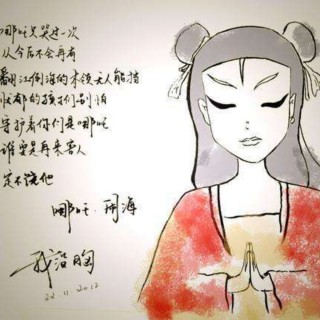 哪吒只哭这一次
从今后不会再有
翻江倒海的本领无人能挡
所有的孩子们别怕
守护着你们是哪吒
谁要是再来害人
定不饶他
哪吒·闹海
22.11.2012